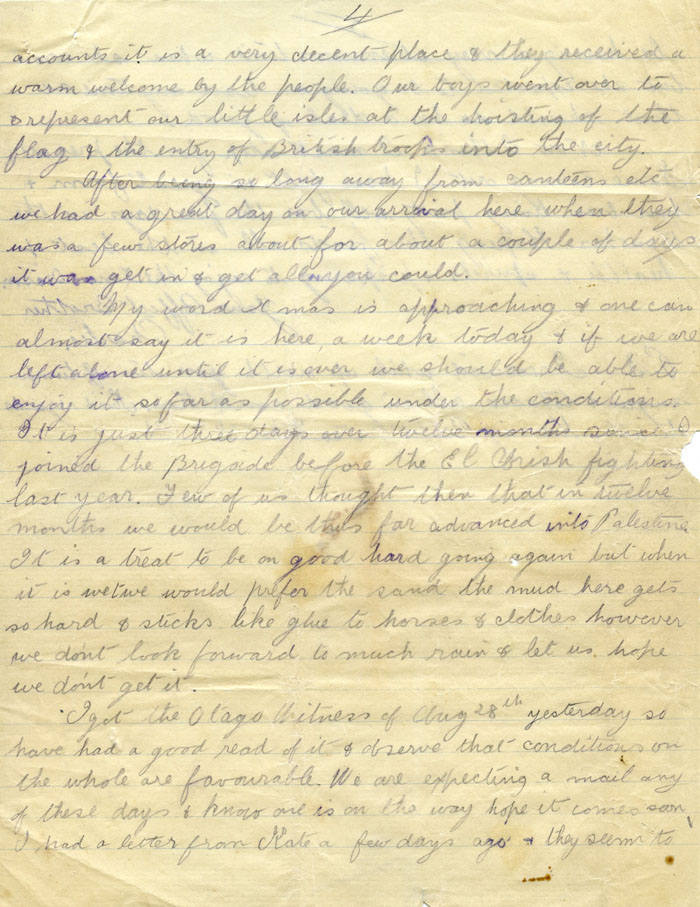 4
accounts it is a very decent place & they received a
warm welcome by the people. Our boys went over to
represent our little isles at the hoisting of the
flag & the entry of British troops into the city.
After being so long away from canteens etc
we had a great day on our arrival here when they
was a few stores about for about a couple of days
it was get in & get all you could.
My word Xmas is approaching & one can
almost say it is here, a week today & if we are
left alone until it is over we should be able to
enjoy it so far as possible under the conditions.
It is just three days over twelve months since I
joined the Brigade before the El Arish fighting
last year. Few of us thought then that in twelve
months we would be thus far advanced into Palestine
It is a treat to be on good hard going again but when
it is wet we would prefer the sand the mud here gets
so hard & sticks like glue to horses & clothes however
we dont look forward to much rain & let us hope
we don't get it.
I got the Otago Witness of Aug 28th yesterday so
have had a good read of it & observe that conditions on
the whole are favourable. We are expecting a mail any
of these days & know one is on the way hope it comes soon
I had a letter from Kate a few days ago & they seem to